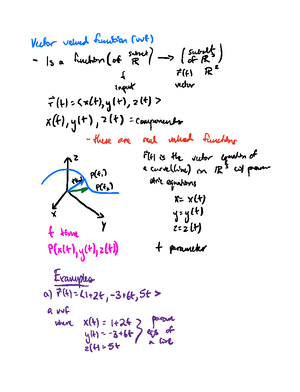 Vector valued function (vvf)
- Is a function (of subset ℝ) → (subset of ℝ³)
t r⃗(t) ℝ²
input vector
r⃗(t) = <x(t), y(t), z(t)>
x(t), y(t), z(t) = components
- these are real valued functions
r⃗(t) is the vector equation of
a curve (line) in ℝ³ w/ param
etric equations
x = x(t)
y = y(t)
z = z(t)
t parameter
z
P(t₁)
r(t)
P(t₂)
x
y
t time
P(x(t), y(t), z(t))
Examples
a) r⃗(t) = <1+2t, -3+6t, 5t>
a vvf
where x(t) = 1+2t } param
y(t) = -3+6t eqs of
z(t) = 5t a line